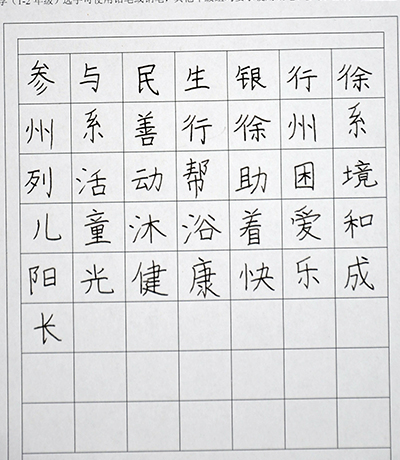 参与民生银行徐
州系善行徐州系
列活动帮助困境
儿童沐浴着爱和
阳光健康快乐成
长